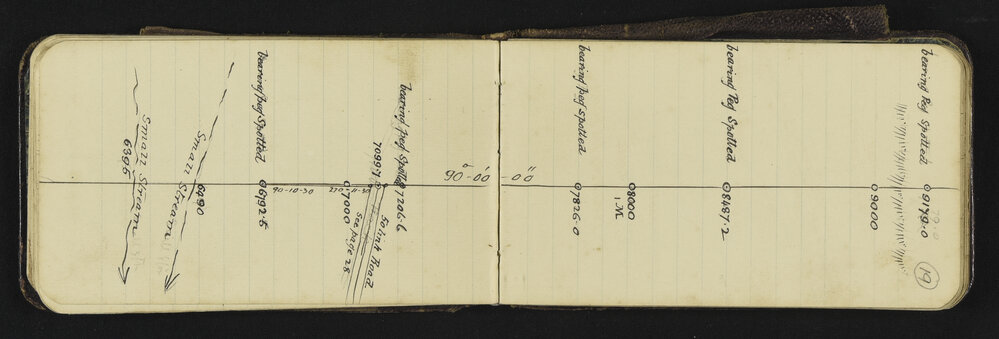 Small Stream
6395
Small Stream
6490
bearing peg spotted
6792.5
90-10-30
220-11-30
7000
See page 28
7099
50 link Road
bearing peg Spotted
7206.6
90°-00'-00"
bearing peg spotted
7826.0
8000
1 M.
bearing Peg Spotted
8487.2
9000
bearing Peg Spotted
9179.0
19